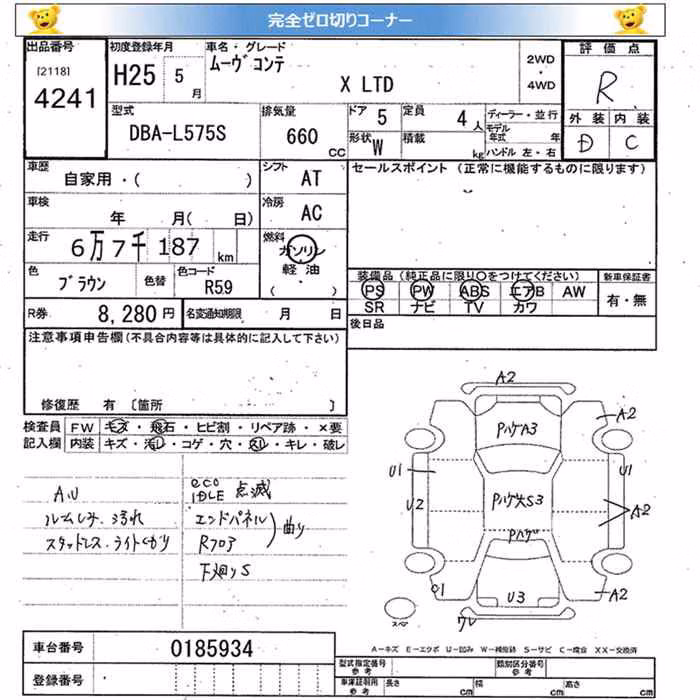 完全ゼロ切りコーナー
出品番号
[2118]
4241
初度登録年月
H25 5月
車名・グレード
ムーヴコンテ
X LTD
2WD
・
4WD
評価点
R
外装 内装
D C
型式
DBA-L575S
排気量
660 cc
ドア 5
定員 4人
形状 W
積載 kg
ディーラー・並行
モデル年式 年
ハンドル 左・右
車歴
自家用・( )
シフト AT
セールスポイント (正常に機能するものに限ります)
車検
年 月( 日)
冷房 AC
走行
6万7千187 km
燃料
ガソリン
軽油
( )
色
ブラウン
色替
色コード
R59
装備品 (純正品に限り〇をつけてください)
新車保証書
PS PW ABS エアB AW
有・無
SR ナビ TV カワ
R券 8,280円
名変通知期限 月 日
後日品
注意事項申告欄 (不具合内容等は具体的に記入して下さい)
修復歴 有 〔箇所 〕
検査員 FW キズ・飛石・ヒビ割・リペア跡・×要
記入欄 内装 キズ・汚レ・コゲ・穴・スレ・キレ・破レ
A.U
ルームシミ.汚れ
スタッドレス.ライトくもり
eco
IDLE 点滅
エンドパネル
Rフロア
曲り
下廻りS
A2
A2
PハゲA3
U1
U1
U2
Pハゲ大S3
A2
Pハゲ
A2
U3
ワレ
スペア
車台番号 0185934
登録番号
A－キズ E－エクボ U－凹み W－補修跡 S－サビ C－腐食 XX－交換済
型式指定番号
参考
類別区分番号
参考
車庫証明用
参考
長さ cm
幅 cm
高さ cm